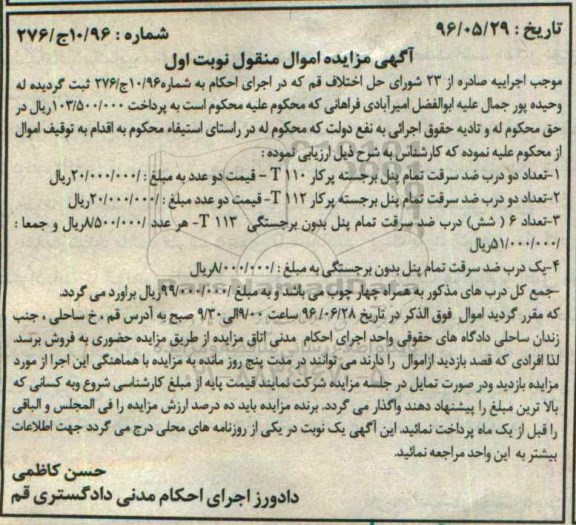 تاریخ : ۹۶/۰۵/۲۹ شماره : ۱۰/۹۶ج/۲۷۶
آگهی مزایده اموال منقول نوبت اول
موجب اجراییه صادره از ۲۳ شورای حل اختلاف قم که در اجرای احکام به شماره۱۰/۹۶ج/۲۷۶ ثبت گردیده له
وحیده پور جمال علیه ابوالفضل امیرآبادی فراهانی که محکوم علیه محکوم است به پرداخت ۱۰۳/۵۰۰/۰۰۰ریال در
حق محکوم له و تادیه حقوق اجرائی به نفع دولت که محکوم له در راستای استیفاء محکوم به اقدام به توقیف اموال
از محکوم علیه نموده که کارشناس به شرح ذیل ارزیابی نموده :
۱-تعداد دو درب ضد سرقت تمام پنل برجسته پرکار T ۱۱۰ - قیمت دو عدد به مبلغ : /۲۰/۰۰۰/۰۰۰ریال
۲-تعداد دو درب ضد سرقت تمام پنل برجسته پر کار T ۱۱۲- قیمت دو عدد مبلغ : /۲۰/۰۰۰/۰۰۰ریال
۳-تعداد ۶ ( شش) درب ضد سرقت تمام پنل بدون برجستگی T ۱۱۳- هر عدد /۸/۵۰۰/۰۰۰ریال و جمعا :
/۵۱/۰۰۰/۰۰۰ریال
۴-یک درب ضد سرقت تمام پنل بدون برجستگی به مبلغ : /۸/۰۰۰/۰۰۰ریال
-جمع کل درب های مذکور به همراه چهار چوب می باشد و به مبلغ /۹۹/۰۰۰/۰۰۰ریال براورد می گردد.
که مقرر گردید اموال فوق الذکر در تاریخ ۹۶/۰۶/۲۸ ساعت ۹/۰۰الی۹/۳۰ صبح به آدرس قم ، خ ساحلی ، جنب
زندان ساحلی دادگاه های حقوقی واحد اجرای احکام مدنی اتاق مزایده از طریق مزایده حضوری به فروش برسد.
لذا افرادی که قصد بازدید ازاموال را دارند می توانند در مدت پنج روز مانده به مزایده با هماهنگی این اجرا از مورد
مزایده بازدید ودر صورت تمایل در جلسه مزایده شرکت نمایند قیمت پایه از مبلغ کارشناسی شروع وبه کسانی که
بالا ترین مبلغ را پیشنهاد دهند واگذار می گردد. برنده مزایده باید ده درصد ارزش مزایده را فی المجلس و الباقی
را قبل از یک ماه پرداخت نمائید. این آگهی یک نوبت در یکی از روزنامه های محلی درج می گردد جهت اطلاعات
بیشتر به این واحد مراجعه نمائید.
حسن کاظمی
دادورز اجرای احکام مدنی دادگستری قم